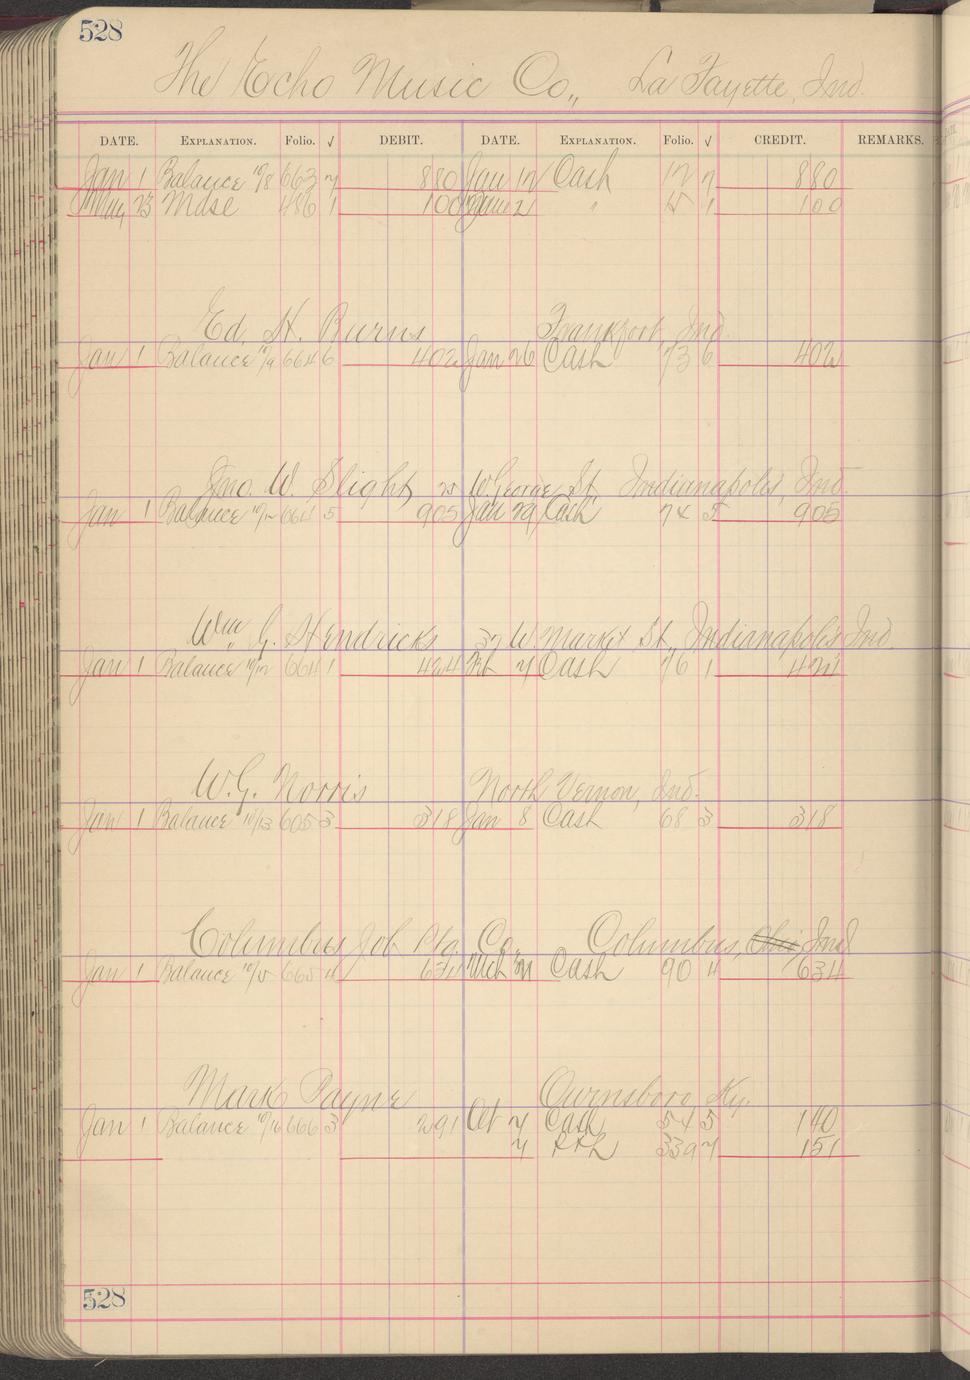 528
The Echo Music Co., La Fayette, Ind.
DATE. EXPLANATION. Folio. √ DEBIT. DATE. EXPLANATION. Folio. √ CREDIT. REMARKS.
Jan 1 Balance 10/8 663 7 880 Jan 12 Cash 7 880
May 23 Mdse 486 1 100 June 21 " 1 100
Ed. H. Burns Frankfort, Ind.
Jan 1 Balance 10/9 664 6 402 Jan 26 Cash 73 6 402
Jno. W. Slight 25 W. George St. Indianapolis, Ind.
Jan 1 Balance 10/12 664 5 905 Jan 29 Cash 74 5 905
Wm. G. Hendricks 37 W. Market St., Indianapolis Ind.
Jan 1 Balance 10/12 664 1 424 Feb 7 Cash 76 1 424
W. G. Norris North Vernon, Ind.
Jan 1 Balance 10/13 605 3 318 Jan 8 Cash 68 3 318
Columbus Job Ptg. Co. Columbus, Ohio, Ind
Jan 1 Balance 10/15 665 4 634 Mch Cash 90 4 634
Mark Payne Owensboro Ky.
Jan 1 Balance 10/16 666 3 291 Oct 7 Cash 54 5 140
7 339 7 151
528